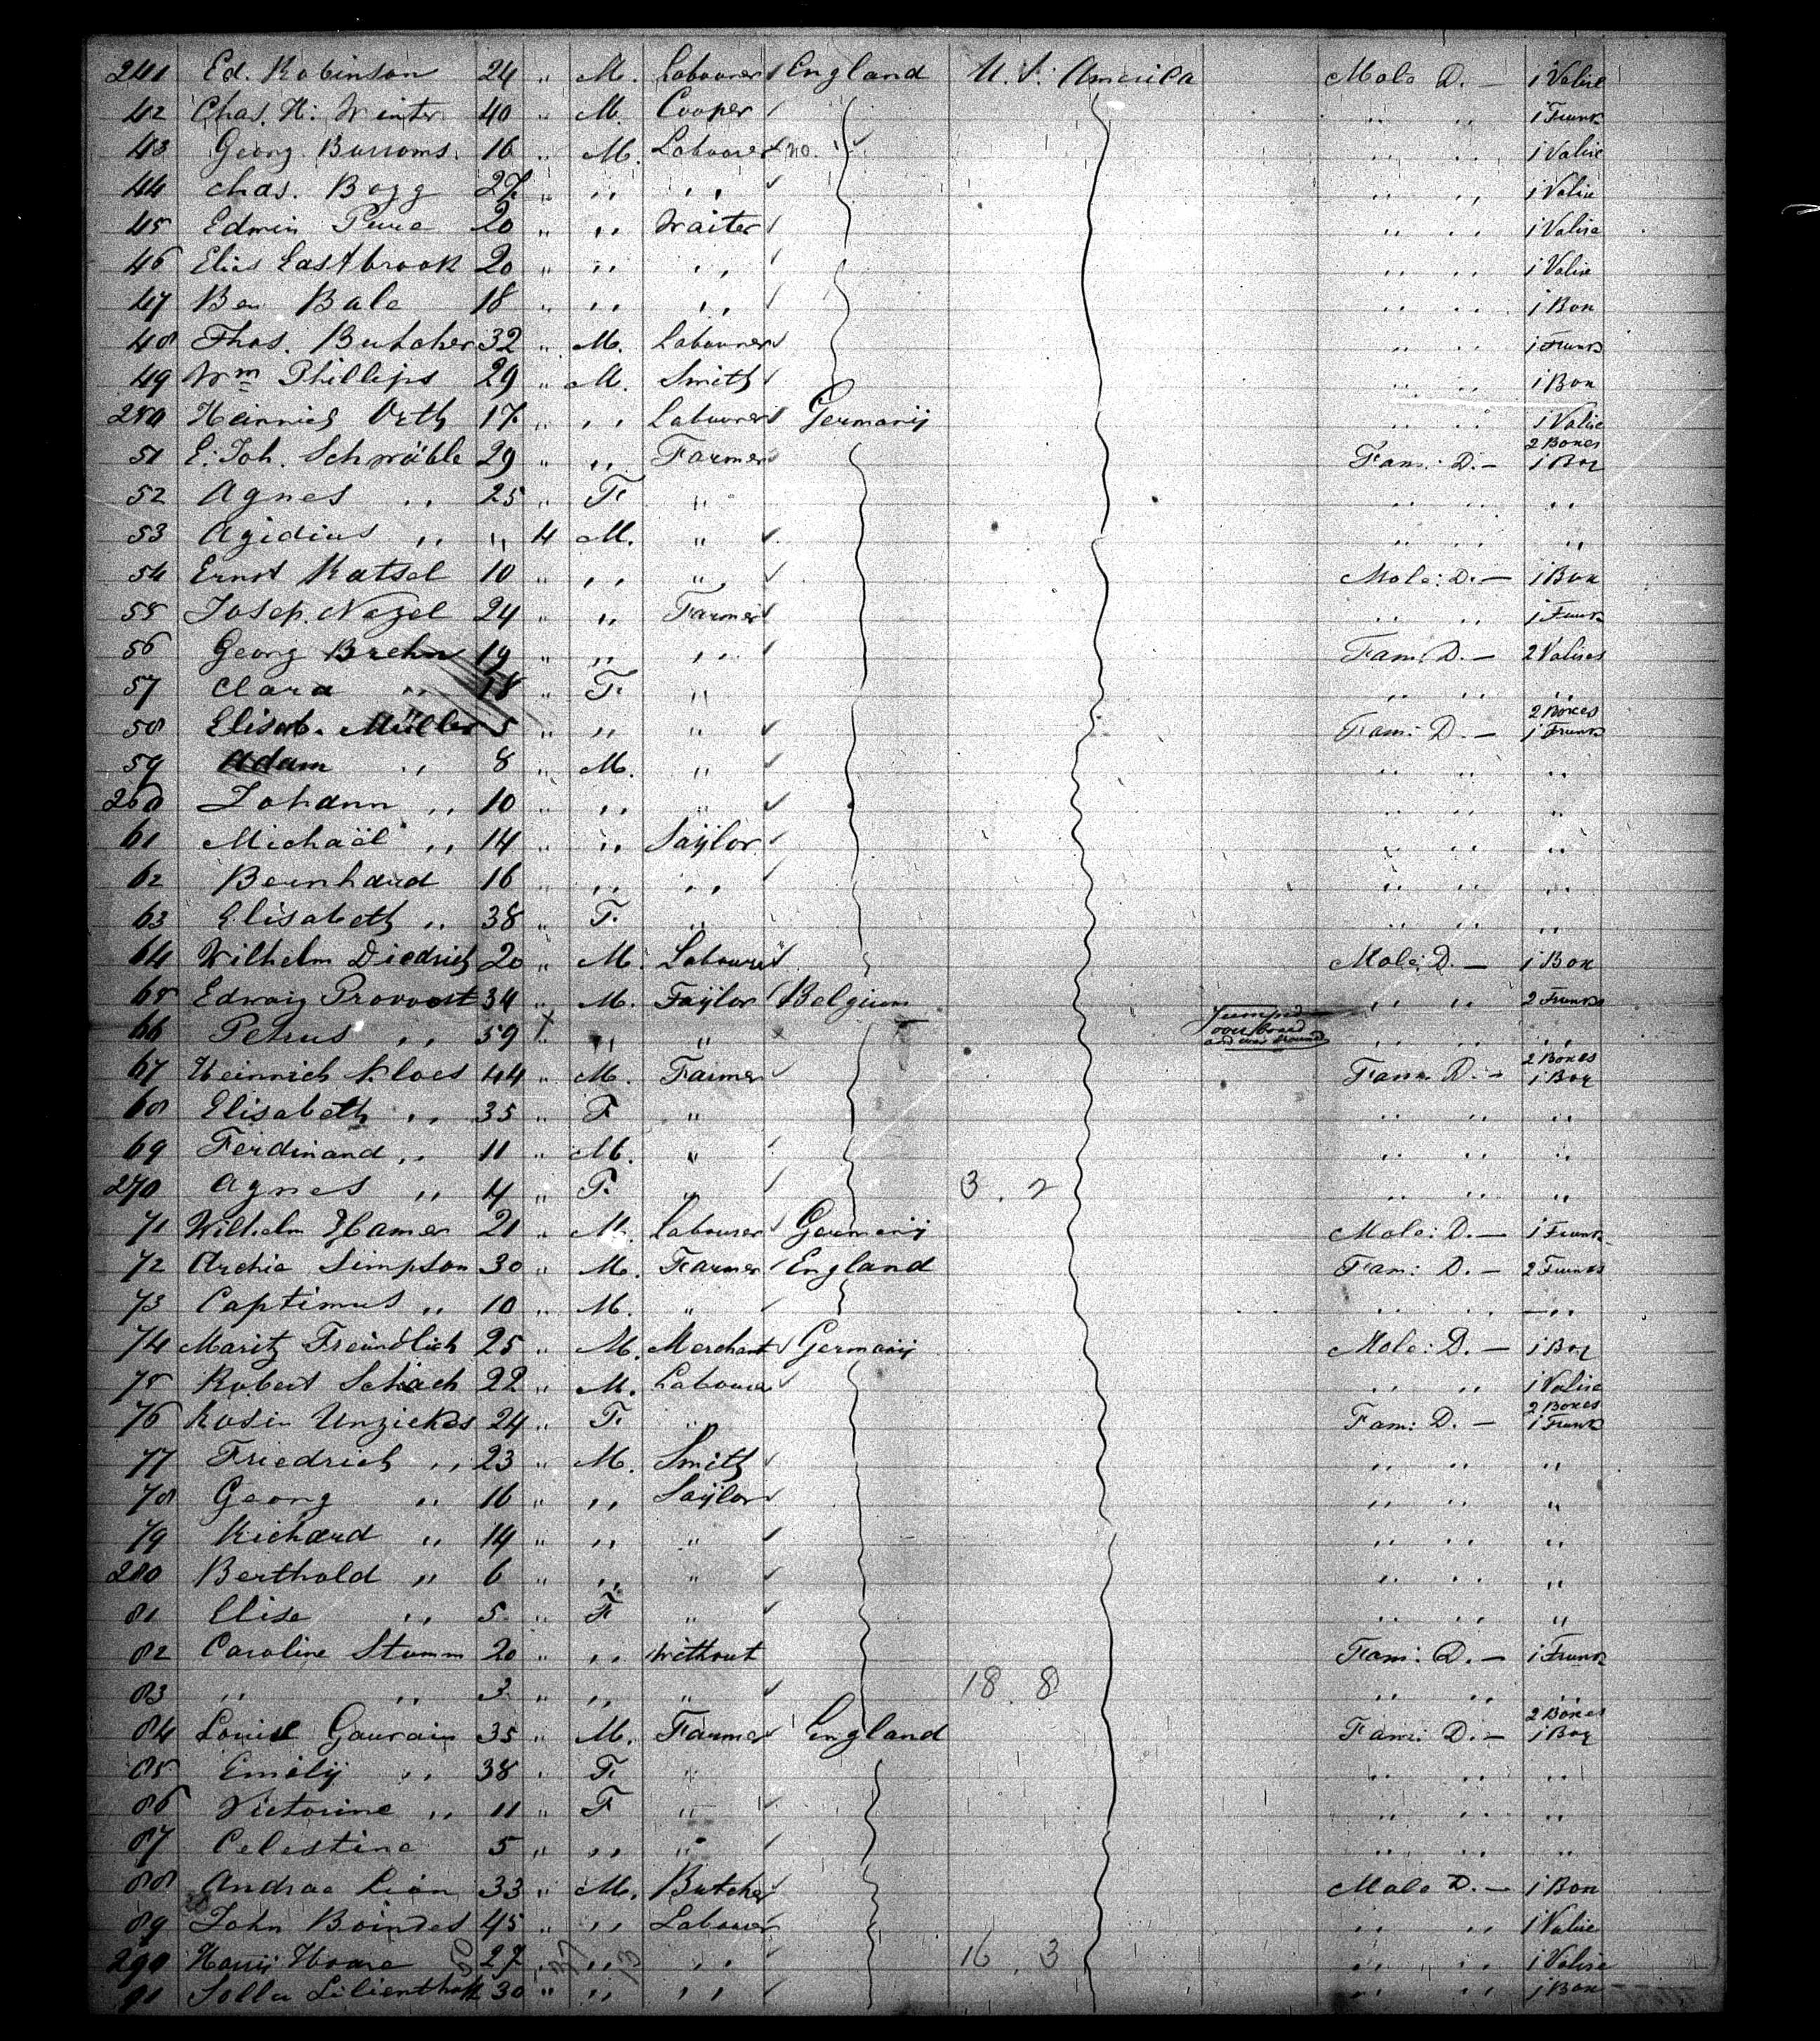 241 Ed. Robinson 24 " M. Labourer England U. S. America Male D. — 1 Valise
42 Chas. H. Winter 40 " M. Cooper " " 1 Trunk
43 Georg Burroms 16 " M. Labourer no. " " 1 Valise
44 Chas. Bogg 27 " " " " " 1 Valise
45 Edwin 20 " " Waiter " " 1 Valise
46 Elias Eastbrook 20 " " " " " 1 Valise
47 Ben Bale 18 " " " " " 1 Box
48 Thos. Butcher 32 " M. Labourer " " 1 Trunk
49 Wm Phillips 29 " M. Smith " " 1 Box
250 Heinrich Orth 17 " " Labourer Germany " " 1 Valise
51 E. Joh. Schwäble 29 " " Farmer Fam: D. — 2 Boxes 1 Bag
52 Agnes " 25 " F. " " " "
53 Agidius " " 4 M. " " " "
54 Ernst Katsel 10 " " " Male: D. — 1 Box
55 Josep. Nagel 24 " " Farmer " " 1 Trunk
56 Georg Brehm 19 " " " Fam: D. — 2 Valises
57 Clara " 18 " F. " " " "
58 Elisab. Müller 5 " " " Fam: D. — 2 Boxes 1 Trunk
59 Adam " 8 " M. " " " "
260 Johann " 10 " " " " " "
61 Michaël " 14 " " Taylor " " "
62 Bernhard 16 " " " " " "
63 Elisabeth " 38 " F. " " " "
64 Wilhelm Diedrich 20 " M. Labourer Male: D. — 1 Box
65 Provoost 34 " M. Taylor Belgium " " 2 Trunks
66 Petrus " 59 " " " Jumped over board and was drowned " " "
67 Heinrich Kloes 44 " M. Farmer Fam: D. — 2 Boxes 1 Bag
68 Elisabeth " 35 " F " " " "
69 Ferdinand " 11 " M. " " " "
270 Agnes " 4 " F. " 3. 2 " " "
71 Wilhelm Hamer 21 " M. Labourer Germany Male: D. — 1 Trunk
72 Archie Simpson 30 " M. Farmer England Fam: D. — 2 Trunks
73 Captimus " 10 " M. " " " "
74 Maritz Freundlich 25 " M. Merchant Germany Male: D. — 1 Bag
75 Robert Schach 22 " M. Labourer " " 1 Valise
76 Rosin 24 " F. " Fam: D. — 2 Boxes 1 Trunk
77 Friedrich " 23 " M. Smith " " "
78 Georg " 16 " " Taylor " " "
79 Richard " 14 " " " " " "
280 Berthold " 6 " " " " " "
81 Elise " 5 " F " " " "
82 Caroline Stamm 20 " " without Fam: D. — 1 Trunk
83 " " 3 " " " 18. 8 " " "
84 Louise Gaurain 35 " M. Farmer England Fam: D. — 2 Boxes 1 Bag
85 Emily " 38 " F. " " " "
86 Victorine " 11 " F " " " "
87 Celestine 5 " " " " " "
88 Andrae Lion 33 " M. Butcher Male D. — 1 Box
89 John 45 " " Labourer " " 1 Valise
290 Harry Hoare 27 " " " 16. 3 " " 1 Valise
91 30 " " " 1 Box